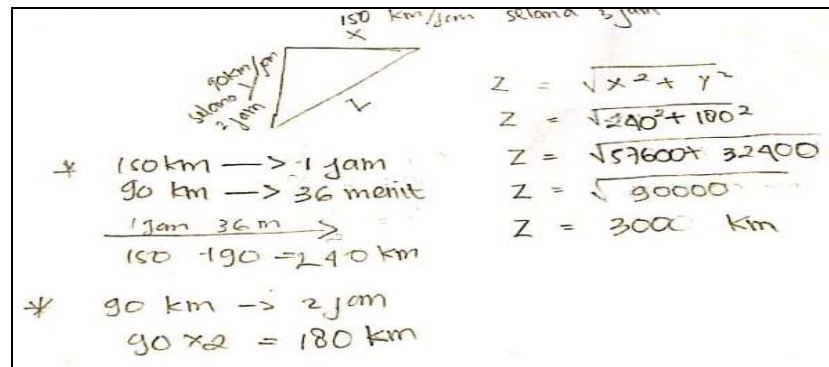 150 km/jam selama 3 jam
x
90km/jam
selama y
2 jam
z
* 150km —> 1 jam
90 km —> 36 menit
1 jam 36 m
150 + 90 = 240 km
* 90 km —> 2 jam
90 x 2 = 180 km
Z = √x² + y²
Z = √240² + 180²
Z = √57600 + 32400
Z = √90000
Z = 3000 km